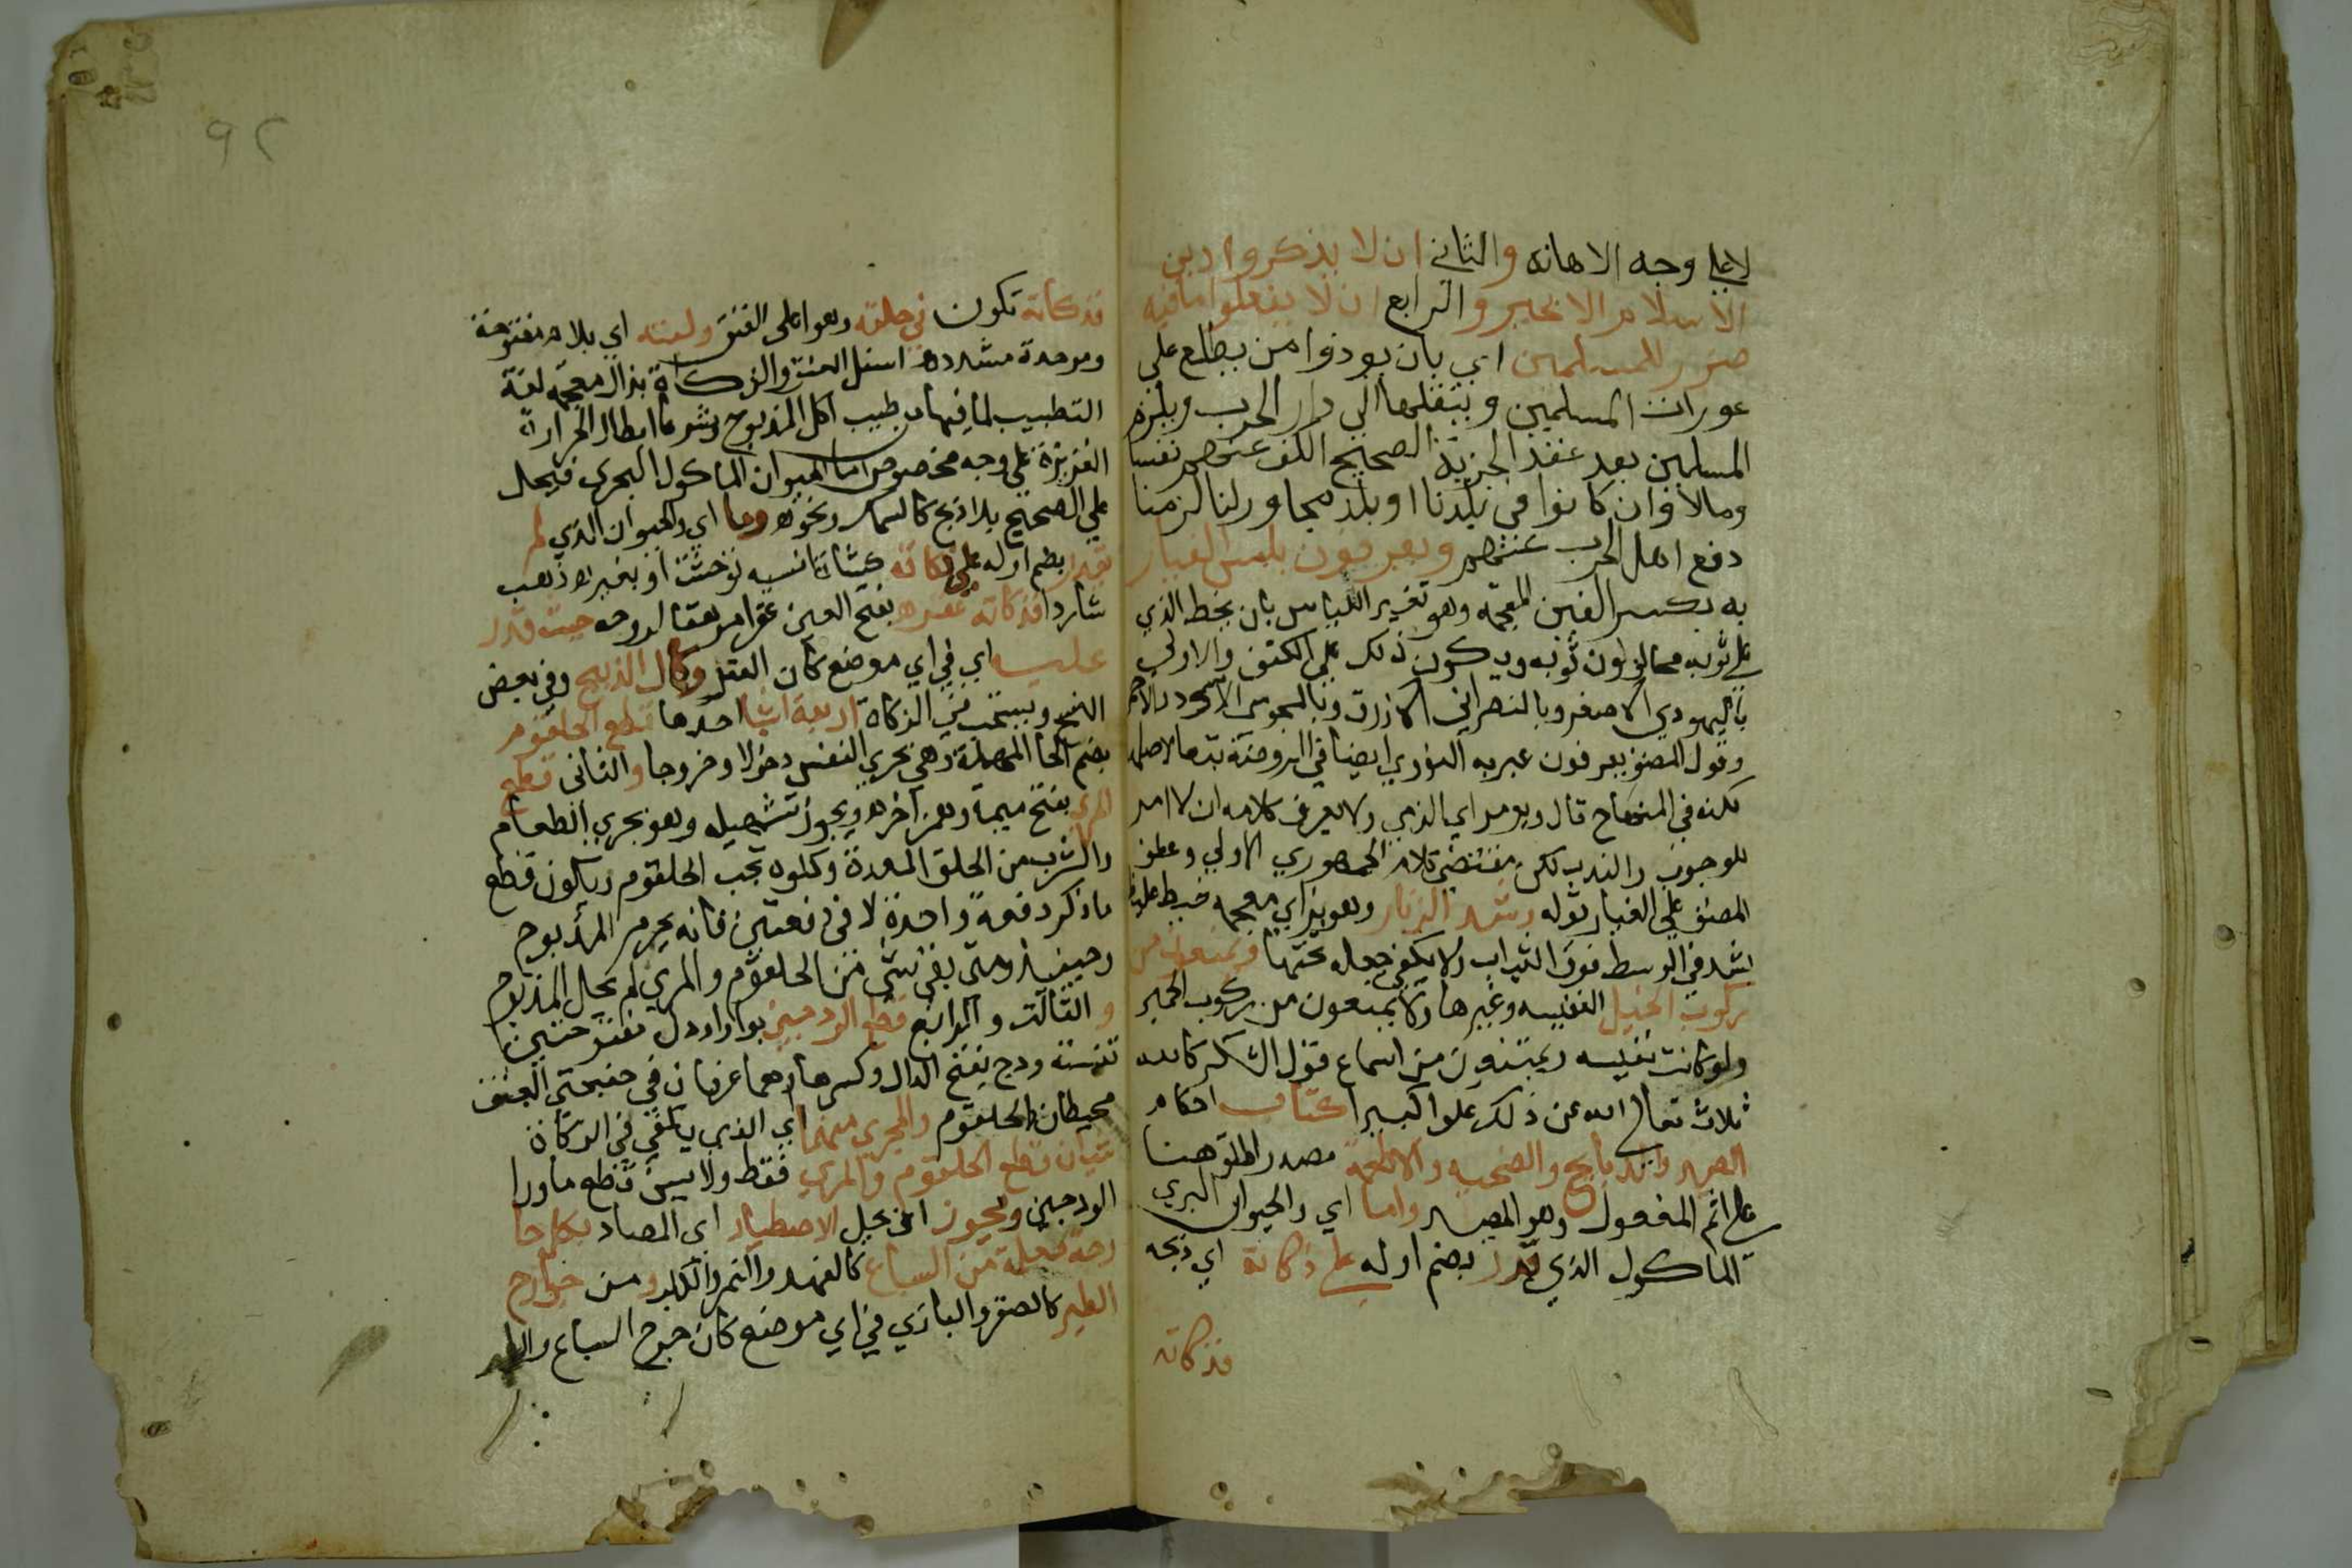 لا على وجه الاهانه والثاني ان لا يذكروا دين
الاسلام الا بخير والرابع ان لا يفعلوا ما فيه
ضرر للمسلمين اي بان يودوا من يطلع على
عورات المسلمين وينقلها الى دار الحرب ويلزم
المسلمين بعد عقد الجزية الصحيح الكف عنهم نفسا
ومالا وان كانوا في بلدنا او بلد مجاور لنا لزمنا
دفع اهل الحرب عنهم ويعرفون بلبس الغيار
به بكسر الغين المعجمه وهو تغيير اللباس بان يخط الذي
على ثوبه مخالف لون ثوبه ويكون ذلك على الكتف والاولى
باليهودي الاصفر وبالنصراني الازرق وبالمجوسي الاسود والاحمر
وقول المصنف يعرفون عبر به النووي ايضا في الروضة تبعا لاصلها
لكنه في المنهاج قال ويومر اي الذمي ولا يعرف كلامه ان الامر
للوجوب والندب لكن مقتضى كلام الجمهوري الاولى وعطف
المصنف على الغيار قوله وشد الزنار وهو بزاي معجمه خيط غليظ
يشد في الوسط فوق الثياب ولا يكفي جعله تحتها ويمنعون من
ركوب الخيل النفيسه وغيرها ولا يمنعون من ركوب الحمير
ولو كانت نفيسه ويمنعون من اسماع قول الشكر كالله
ثلاث تعالى الله عن ذلك علوا كبيرا كتاب احكام
الصيد والذبايح والضحيه والاطعمه مصدر اطلق هنا
على اسم المفعول وهو المصيد واما اي والحيوان البري
الماكول الذي قدر بضم اوله على ذكاته اي ذبحه
فذكاته
٩٢
فذكاته تكون في حلقه وهو اعلى العنق ولبته اي بلام مفتوحة
وموحدة مشدده اسفل العنق والذكاة بذال معجمه لغة
التطبيب لما فيها من طبيب اكل المذبوح وشرعا ابطال الحرارة
الغريزة على وجه مخصوص اما الحيوان الماكول البحري فيحل
على الصحيح بلا ذبح كالسمك ونحوه وما اي والحيوان الذي لم
يقدر بضم اوله على ذكاته كشاة انسيه توحشت او بعير ذهب
شاردا فذكاته عقره بفتح العين عقرا مزهقا لروحه حيث قدر
عليه اي في اي موضع كان العقر وكمال الذبح وفي بعض
النسخ ويستحب في الزكاة اربعة اشيا احدها قطع الحلقوم
بضم الحا المهملة وهي مجري النفس دخولا وخروجا والثاني قطع
المري بفتح ميمه وهمز آخره ويجوز تسهيله وهو مجري الطعام
والشرب من الحلق المعدة وكلوه تحت الحلقوم ويكون قطع
ما ذكر دفعة واحدة لا في دفعتين فانه يحرم المذبوح
وحينيذ ومتى بقي شي من الحلقوم والمري لم يحل المذبوح
والثالث والرابع قطع الودجين بواو ودال مفتوحتين
تثنية ودج بفتح الدال وكسرها وهما عرقان في صفحتي العنق
محيطان بالحلقوم والمجزي منهما اي الذي يكفي في الزكاة
شيان قطع الحلقوم والمري فقط ولا يسن قطع ما ورا
الودجين ويجوز اي يحل الاصطياد اي المصاد بكل جا
رحة معلمة من السباع كالفهد والنمر والكلب ومن جوارح
الطير كالصقر والبازي في اي موضع كان جرح السباع والطير